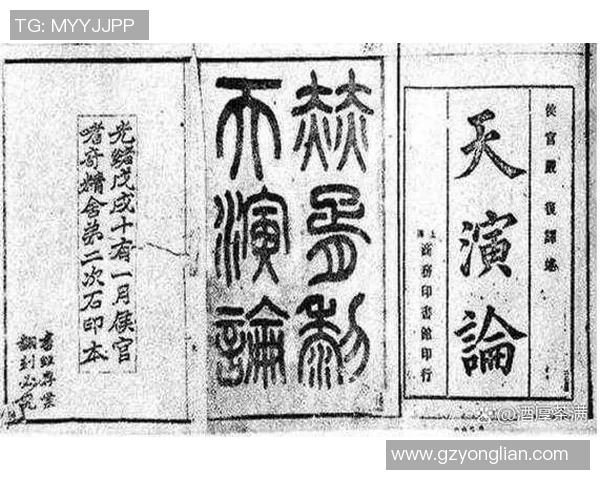 TG: MYYJJPP
侯官嚴復譯述
天演論
上海商務印書館印行
赫胥黎
天演論
光緒戊戌十有一月侯官
嗜奇精舍第二次石印本
書經存案
翻刻必究
@酒厚茶满
www.gzyonglian.com